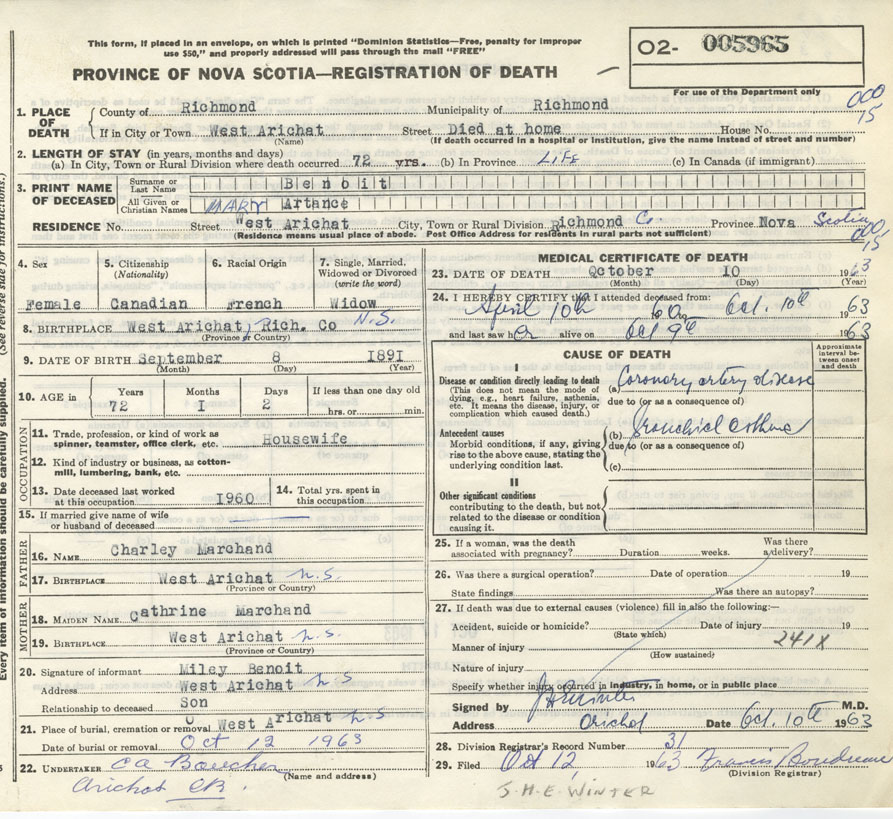 This form, if placed in an envelope, on which is printed "Dominion Statistics—Free, penalty for improper
use $50," and properly addressed will pass through the mail "FREE"
O2- 005965
PROVINCE OF NOVA SCOTIA—REGISTRATION OF DEATH
For use of the Department only
000
15
1. PLACE OF DEATH
County of Richmond Municipality of Richmond
If in City or Town West Arichat Street Died at home House No.
(Name) (If death occurred in a hospital or institution, give the name instead of street and number)
2. LENGTH OF STAY (in years, months and days)
(a) In City, Town or Rural Division where death occurred 72 yrs. (b) In Province LIFE (c) In Canada (if immigrant)
3. PRINT NAME OF DECEASED
Surname or Last Name Benoit
All Given or Christian Names MARY Artance
RESIDENCE No. Street West Arichat City, Town or Rural Division Richmond Co. Province Nova Scotia
(Residence means usual place of abode. Post Office Address for residents in rural parts not sufficient)
000
15
4. Sex 5. Citizenship (Nationality) 6. Racial Origin 7. Single, Married, Widowed or Divorced (write the word)
Female Canadian French Widow
8. BIRTHPLACE West Arichat, Rich. Co N.S.
(Province or Country)
9. DATE OF BIRTH September 8 1891
(Month) (Day) (Year)
10. AGE in Years Months Days If less than one day old
72 1 2 hrs. or min.
OCCUPATION
11. Trade, profession, or kind of work as spinner, teamster, office clerk, etc. Housewife
12. Kind of industry or business, as cotton-mill, lumbering, bank, etc.
13. Date deceased last worked at this occupation 1960
14. Total yrs. spent in this occupation
15. If married give name of wife or husband of deceased
FATHER
16. NAME Charley Marchand
17. BIRTHPLACE West Arichat N.S.
(Province or Country)
MOTHER
18. MAIDEN NAME Cathrine Marchand
19. BIRTHPLACE West Arichat N.S.
(Province or Country)
20. Signature of informant Miley Benoit
Address West Arichat N.S
Relationship to deceased Son
21. Place of burial, cremation or removal West Arichat N.S
Date of burial or removal Oct 12 1963
22. UNDERTAKER CA Boucher
(Name and address)
Arichat CB.
MEDICAL CERTIFICATE OF DEATH
23. DATE OF DEATH October 10 1963
(Month) (Day) (Year)
24. I HEREBY CERTIFY that I attended deceased from:
April 10th to Oct. 10th 1963
and last saw her alive on Oct 9th 1963
CAUSE OF DEATH
Approximate interval between onset and death
I
Disease or condition directly leading to death
(This does not mean the mode of dying, e.g., heart failure, asthenia, etc. It means the disease, injury, or complication which caused death.)
(a) Coronary artery disease
due to (or as a consequence of)
Antecedent causes
Morbid conditions, if any, giving rise to the above cause, stating the underlying condition last.
(b) Bronchial asthma
due to (or as a consequence of)
(c)
II
Other significant conditions
contributing to the death, but not related to the disease or condition causing it.
25. If a woman, was the death associated with pregnancy? Duration weeks. Was there a delivery?
26. Was there a surgical operation? Date of operation 19
State findings Was there an autopsy?
27. If death was due to external causes (violence) fill in also the following:—
Accident, suicide or homicide? Date of injury 19
(State which)
Manner of injury 241X
(How sustained)
Nature of injury
Specify whether injury occurred in industry, in home, or in public place
Signed by M.D.
Address Arichat Date Oct. 10th 1963
28. Division Registrar's Record Number 31
29. Filed Oct 12, 1963 Francis Boudreau
(Division Registrar)
J.H.E. WINTER
Every item of information should be carefully supplied. (See reverse side for instructions.)